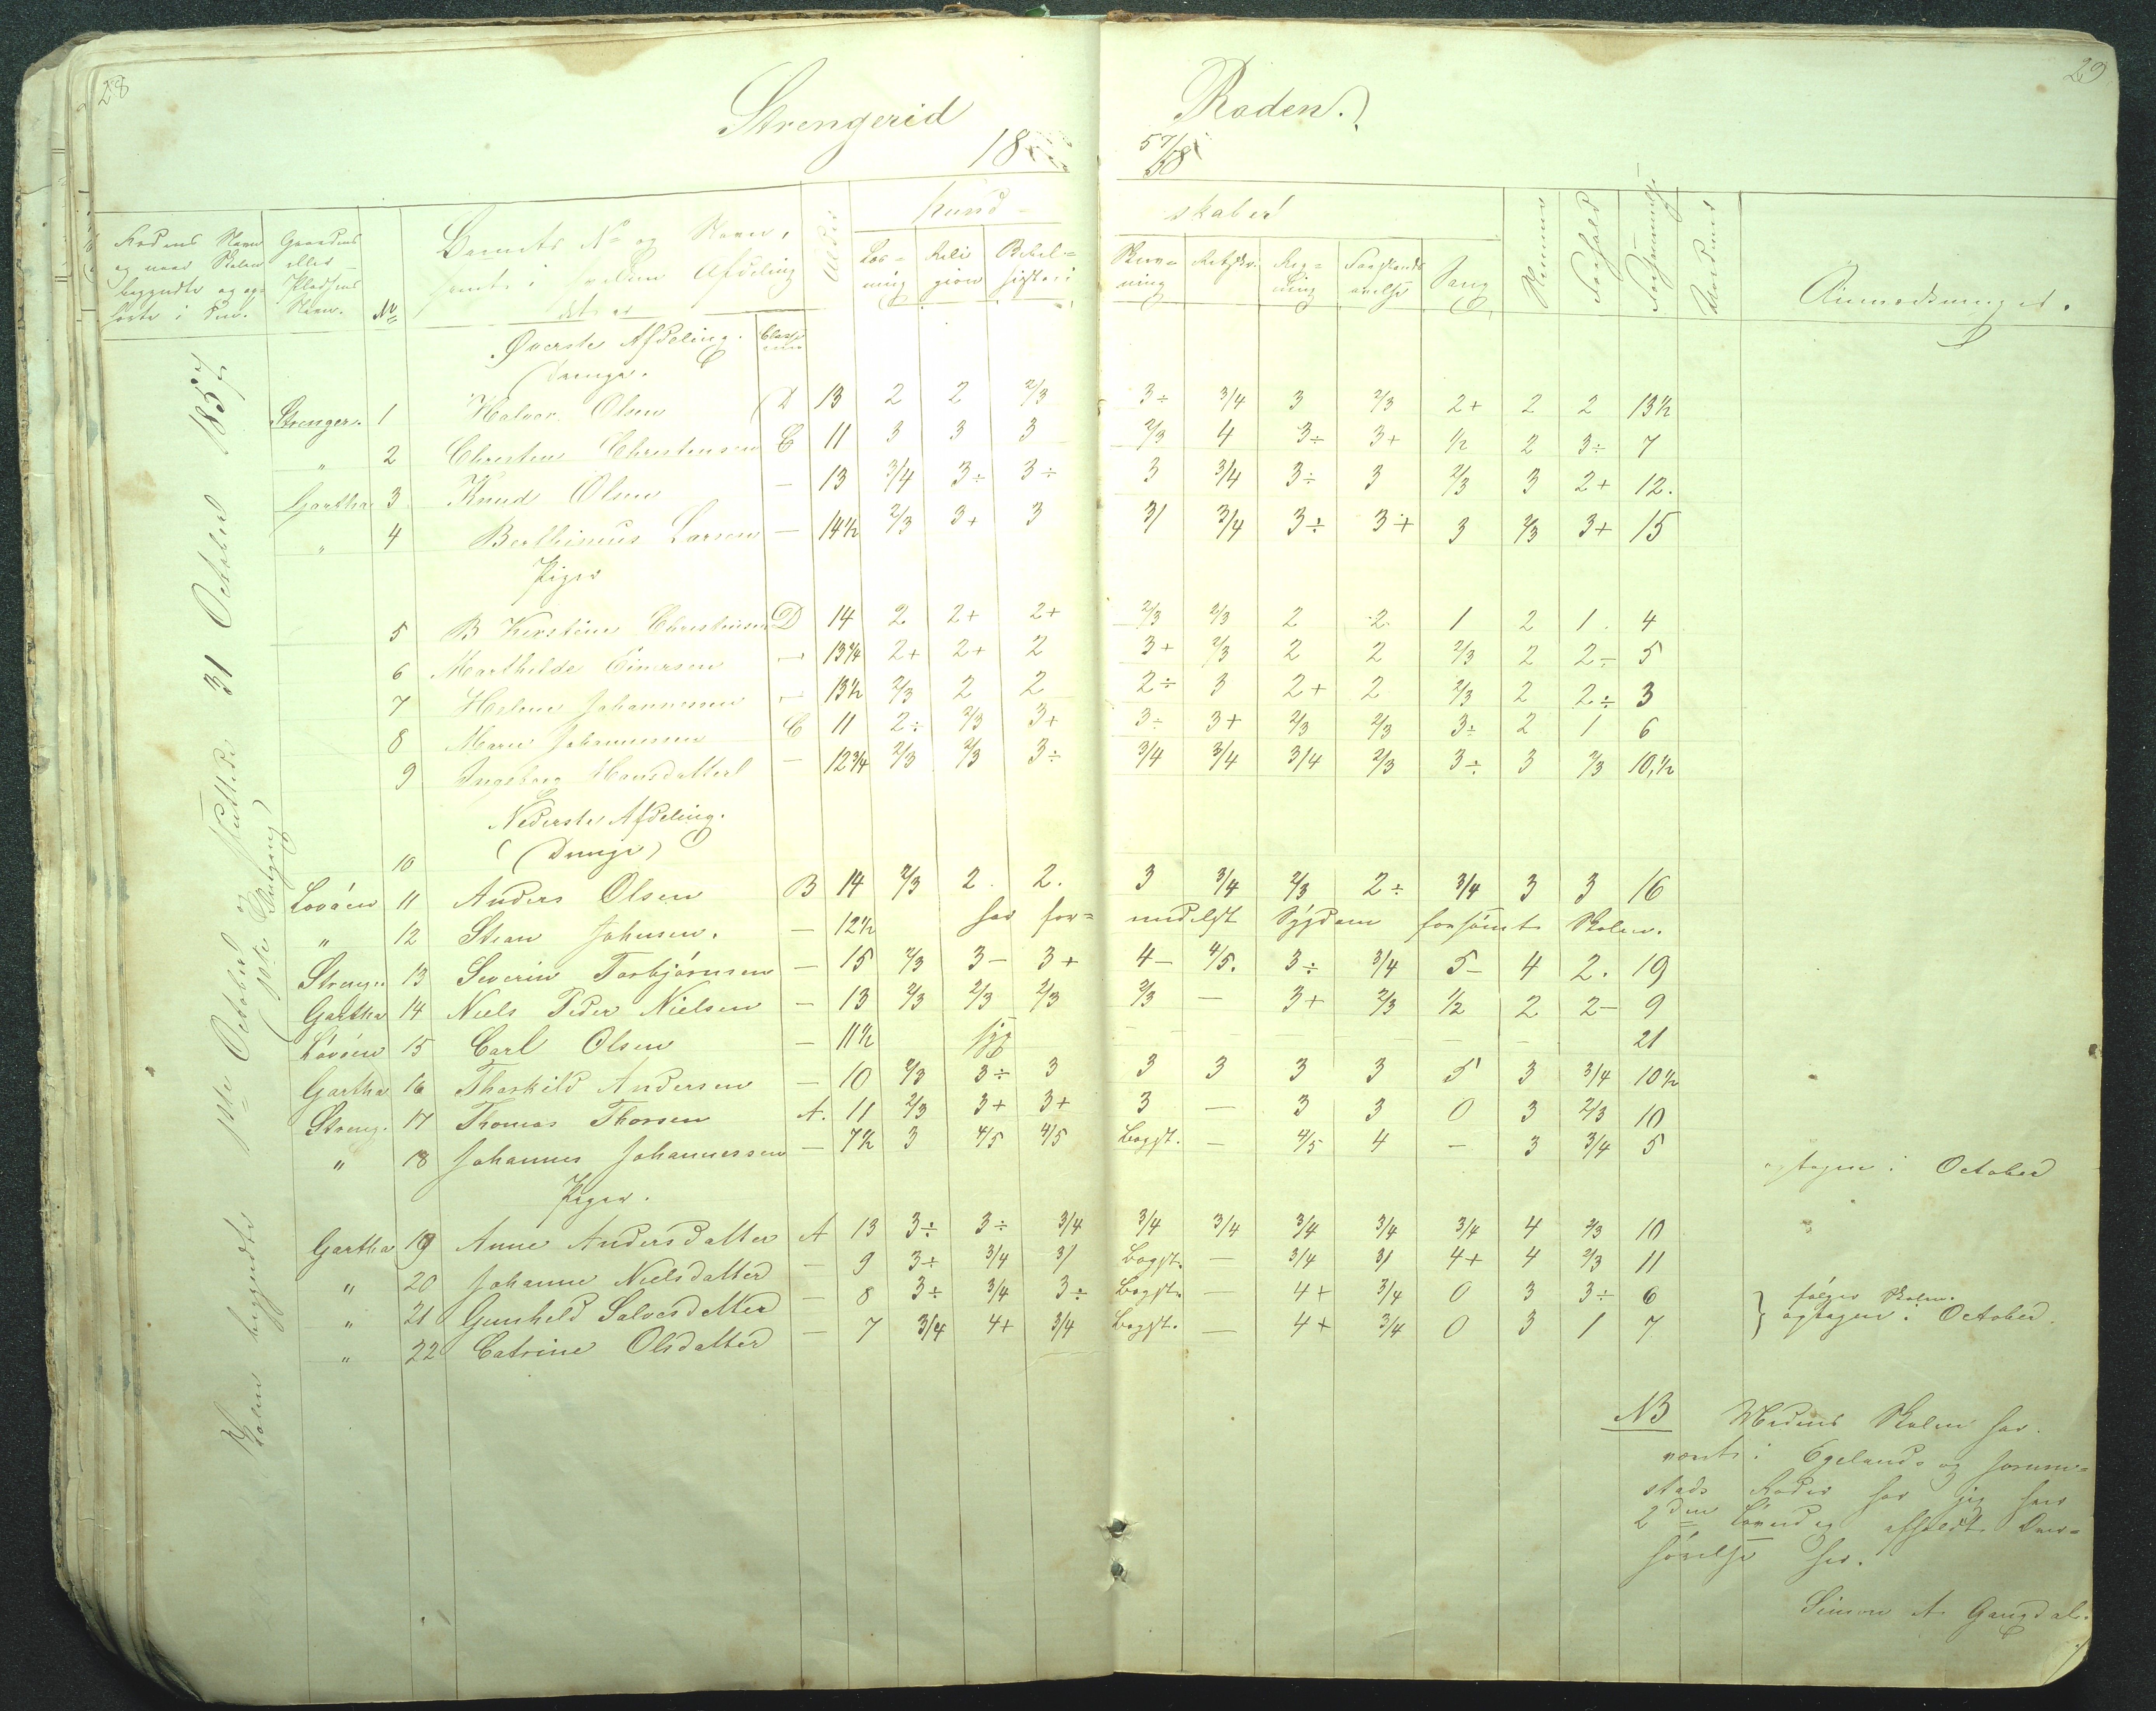 28
29
Strengereid Roden.
18 57/58
Kund-
skaber
Rodens Navn og naar Skolen begyndte og op-hørte i den.
Gaardens eller Pladsens Navn.
No
Barnets No og Navn, samt i hvilken Afdeling det er
Classerne
Alder
Læs-ning
Reli gion
Bibel-historie
Skriv-ning
Retskr.
Reg-ning
Forstands øvelse
Sang
Nemme
Forhold
Forsømmelse
Anmærkninger.
Skolen begyndte 1ste October sluttede 31 October 1857
Øverste Afdeling.
Drenge.
Strenger. 1 Halvor Olsen D 13 2 2 2/3 3÷ 3/4 3 2/3 2+ 2 2 13½
" 2 Christen Christensen C 11 3 3 3 2/3 4 3÷ 3+ ½ 2 3÷ 7
Gartha 3 Knud Olsen — 13 3/4 3÷ 3÷ 3 3/4 3÷ 3 2/3 3 2+ 12.
" 4 Berthinius Larsen — 14½ 2/3 3+ 3 3/ 3/4 3÷ 3+ 3 2/3 3+ 15
Piger
5 B Kirstine Christensen D 14 2 2+ 2+ 2/3 2/3 2 2 1 2 1. 4
6 Marthilde Einersen — 13¾ 2+ 2+ 2 3+ 2/3 2 2 2/3 2 2÷ 5
7 Helene Johannessen — 13½ 2/3 2 2 2÷ 3 2+ 2 2/3 2 2÷ 3
8 Maren Johannessen C 11 2÷ 2/3 3+ 3÷ 3+ 2/3 2/3 3÷ 2 1 6
9 Ingeborg Hansdatter — 12¾ 2/3 2/3 3÷ 3/4 3/4 3/4 2/3 3÷ 3 2/3 10,½
Nederste Afdeling.
10 (Drenge)
Lovøen 11 Anders Olsen B 14 2/3 2. 2. 3 3/4 2/3 2÷ 3/4 3 3 16
" 12 Stean Johnsen. — 12½ har for= medelst Sygdom forsømt Skolen.
Strenger 13 Severin Torbjørnsen — 15 2/3 3- 3+ 4- 4/5. 3÷ 3/4 5- 4 2. 19
Gartha 14 Niels Peder Nielsen — 13 2/3 2/3 2/3 2/3 — 3+ 2/3 ½ 2 2- 9
Lovøen 15 Carl Olsen — 11½ syg — — — — — — — 21
Gartha 16 Thorkild Andersen — 10 2/3 3÷ 3 3 3 3 3 5 3 3/4 10½
Streng. 17 Thomas Thorsen A. 11 2/3 3+ 3+ 3 — 3 3 0 3 2/3 10
" 18 Johannes Johannessen — 7½ 3 4/5 4/5 Bogst. — 4/5 4 — 3 3/4 5 optagen i October
Piger.
Gartha 19 Anne Andersdatter A 13 3÷ 3÷ 3/4 3/4 3/4 3/4 3/4 3/4 4 2/3 10
" 20 Johanne Nielsdatter — 9 3÷ 3/4 3/ Bogst. — 3/4 3/ 4+ 4 2/3 11
" 21 Gunhild Salvesdatter — 8 3÷ 3/4 3÷ Bogst. — 4+ 3/4 0 3 3÷ 6 følger Skolen.
" 22 Catrine Olsdatter — 7 3/4 4+ 3/4 Bogst. — 4+ 3/4 0 3 1 7 optagen i October.
NB Medens Skolen har
været i Egelands og
stads Roder har jeg hver
2den Løverdag afholdt Over=
hørelse her.
Simon A. Gangdal.